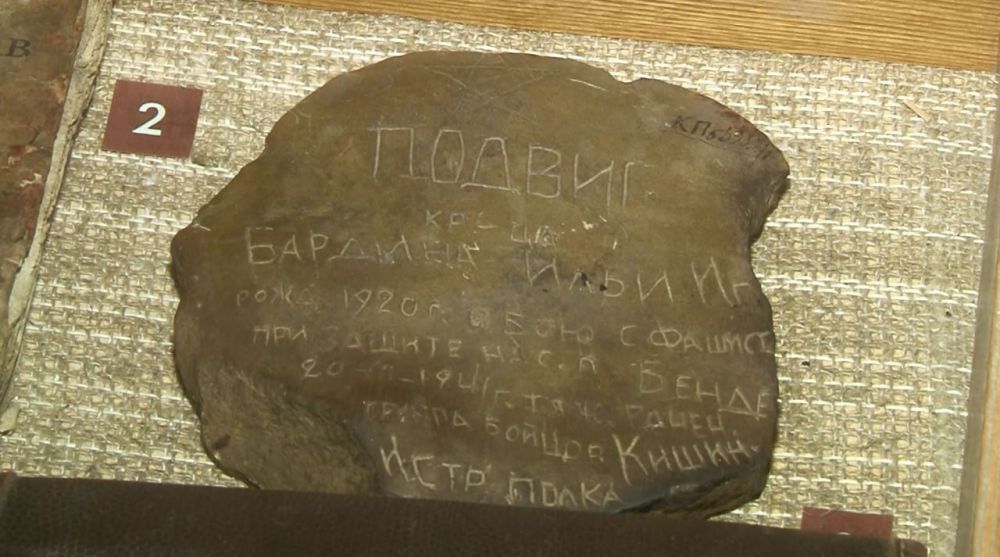 В
2
ПОДВИГ
КР-ЦА
БАРДИНА ИЛЬИ
РОЖД. 1920 г. В БОЮ С ФАШИСТ
ПРИ ЗАЩИТЕ НАС. П ВЕНДЕ
1941 г.
ГРУППА БОЙЦОВ КИШИН.
ИСТР. ПОЛКА